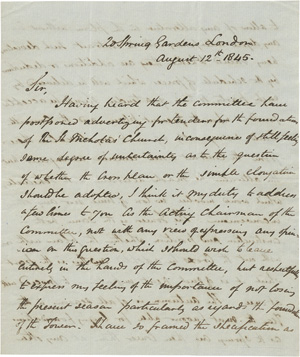 20 Spring Gardens London
August 12th 1845.
Sir,
Having heard that the Committee have
postponed advertizing for Tenders for the foundation
of the St. Nicholas Church, in consequence of still feeling
some degree of uncertainty as to the question
of whether the Cross plan or the simple elongation
should be adopted, I think it my duty to address
a few lines to you as the Acting Chairman of the
Committee, not with any view of expressing any opin-
ion on the question, which I should wish to leave
entirely in the hands of the Committee, but respectfully
to express my feeling of the importance of not losing
the present season particularly as regards the foundation
of the Tower. I have so framed the Specification as